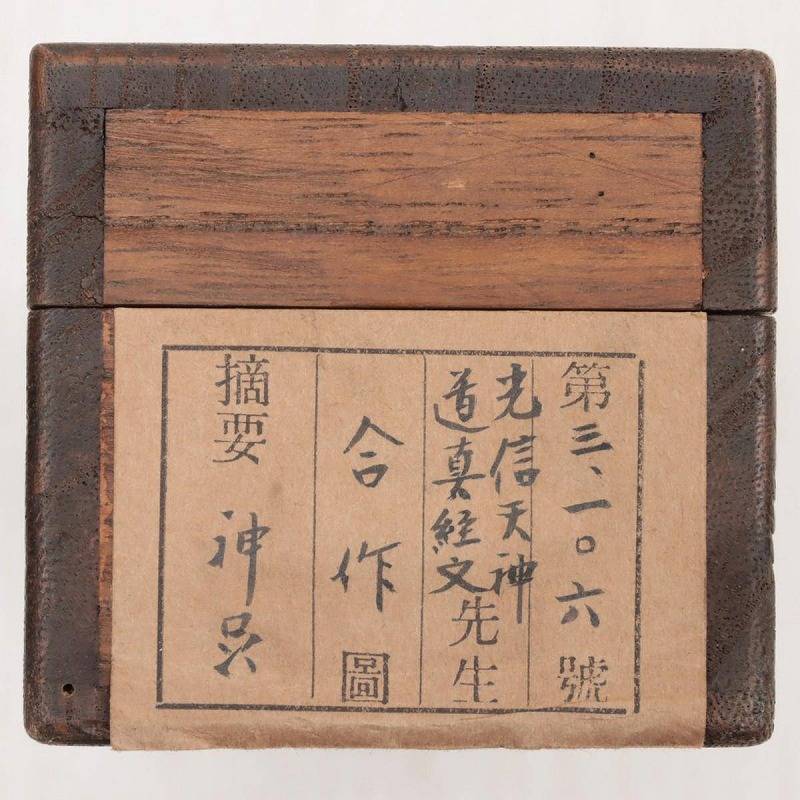 第三、一〇六號
光信天神
道真経文先生
合作圖
摘要 神呉